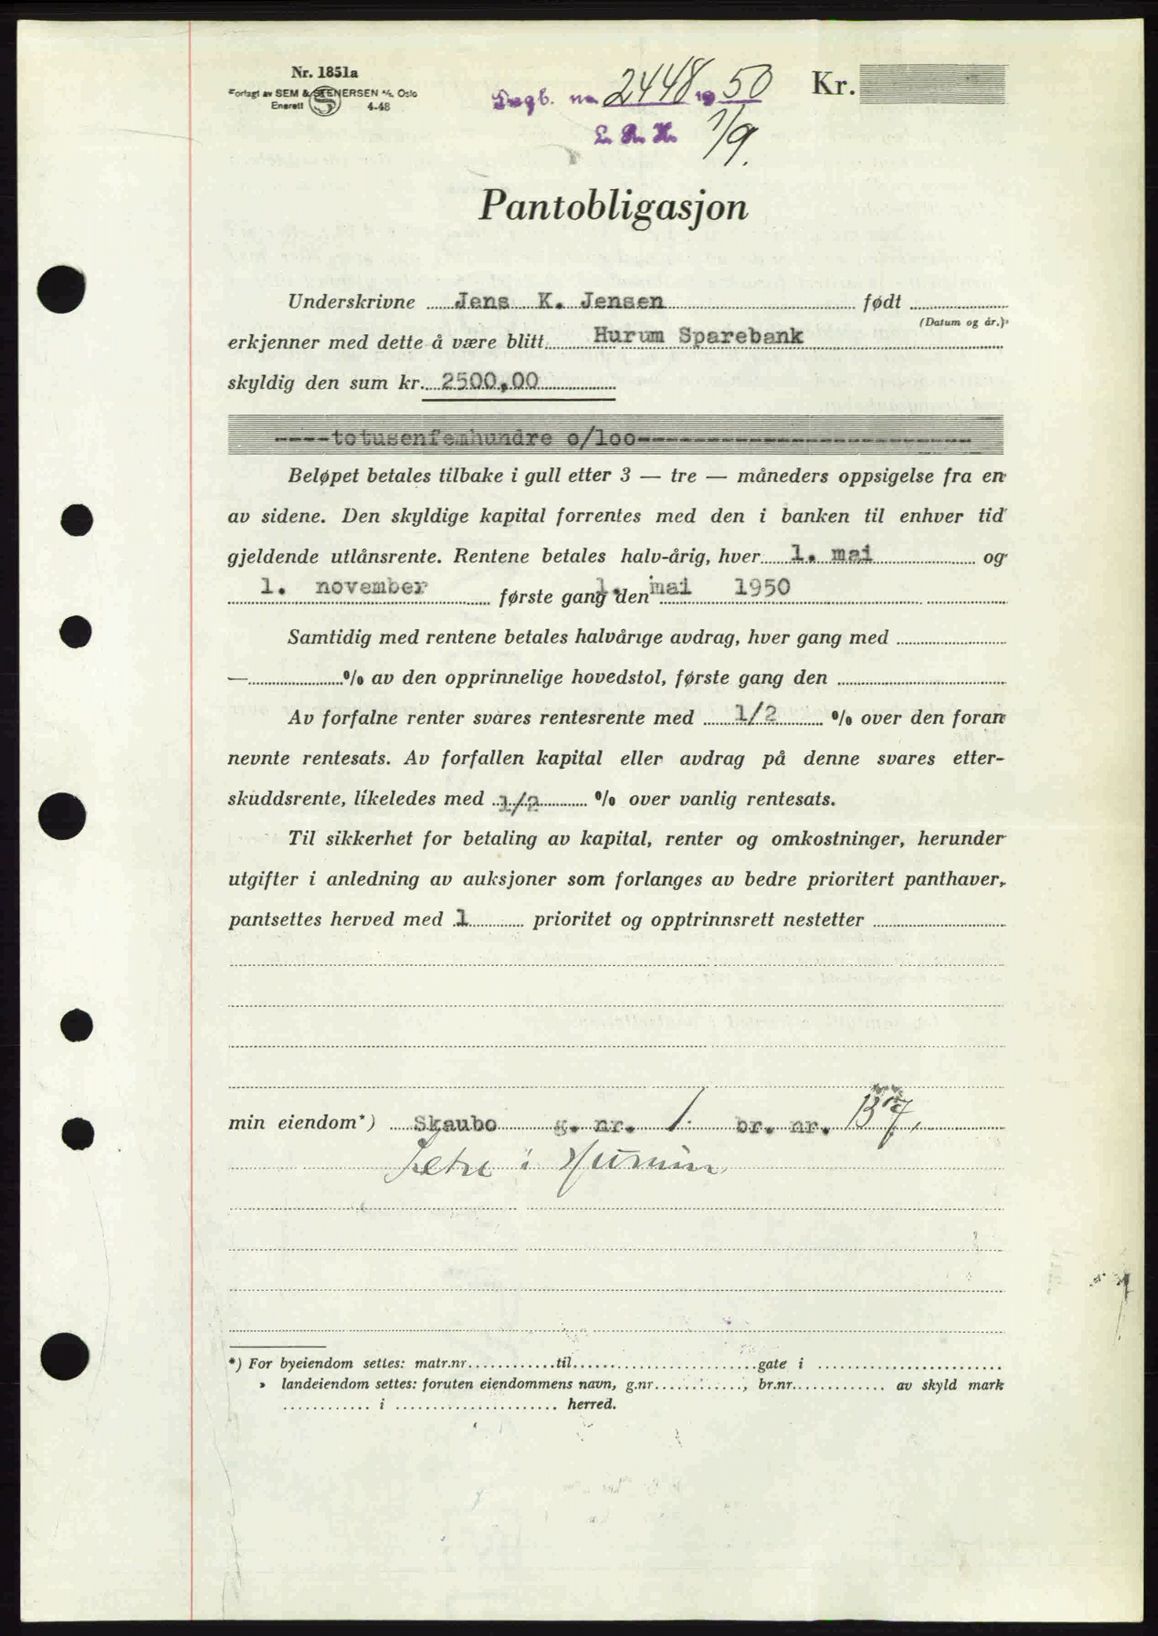 Nr. 1851a
Forlagt av SEM & STENERSEN A/S, Oslo
Enerett 4-48
Dagb. nr. 2448 1950
L. R. H. 1/9.
Kr.
Pantobligasjon
Underskrivne Jens K. Jensen født
(Datum og år.)
erkjenner med dette å være blitt Hurum Sparebank
skyldig den sum kr. 2500,00
----totusenfemhundre o/loo------------------------
Beløpet betales tilbake i gull etter 3 — tre — måneders oppsigelse fra en
av sidene. Den skyldige kapital forrentes med den i banken til enhver tid
gjeldende utlånsrente. Rentene betales halv-årig, hver 1. mai og
1. november første gang den 1. mai 1950
Samtidig med rentene betales halvårige avdrag, hver gang med
— % av den opprinnelige hovedstol, første gang den
Av forfalne renter svares rentesrente med 1/2 % over den foran
nevnte rentesats. Av forfallen kapital eller avdrag på denne svares etter-
skuddsrente, likeledes med 1/2 % over vanlig rentesats.
Til sikkerhet for betaling av kapital, renter og omkostninger, herunder
utgifter i anledning av auksjoner som forlanges av bedre prioritert panthaver,
pantsettes herved med 1 prioritet og opptrinnsrett nestetter
min eiendom*) Skaubo g. nr. 1. br. nr. 137,
Sætre i Hurum
*) For byeiendom settes: matr.nr............til..........................gate i ..........................
» landeiendom settes: foruten eiendommens navn, g.nr............., br.nr............. av skyld mark
............ i ....................... herred.